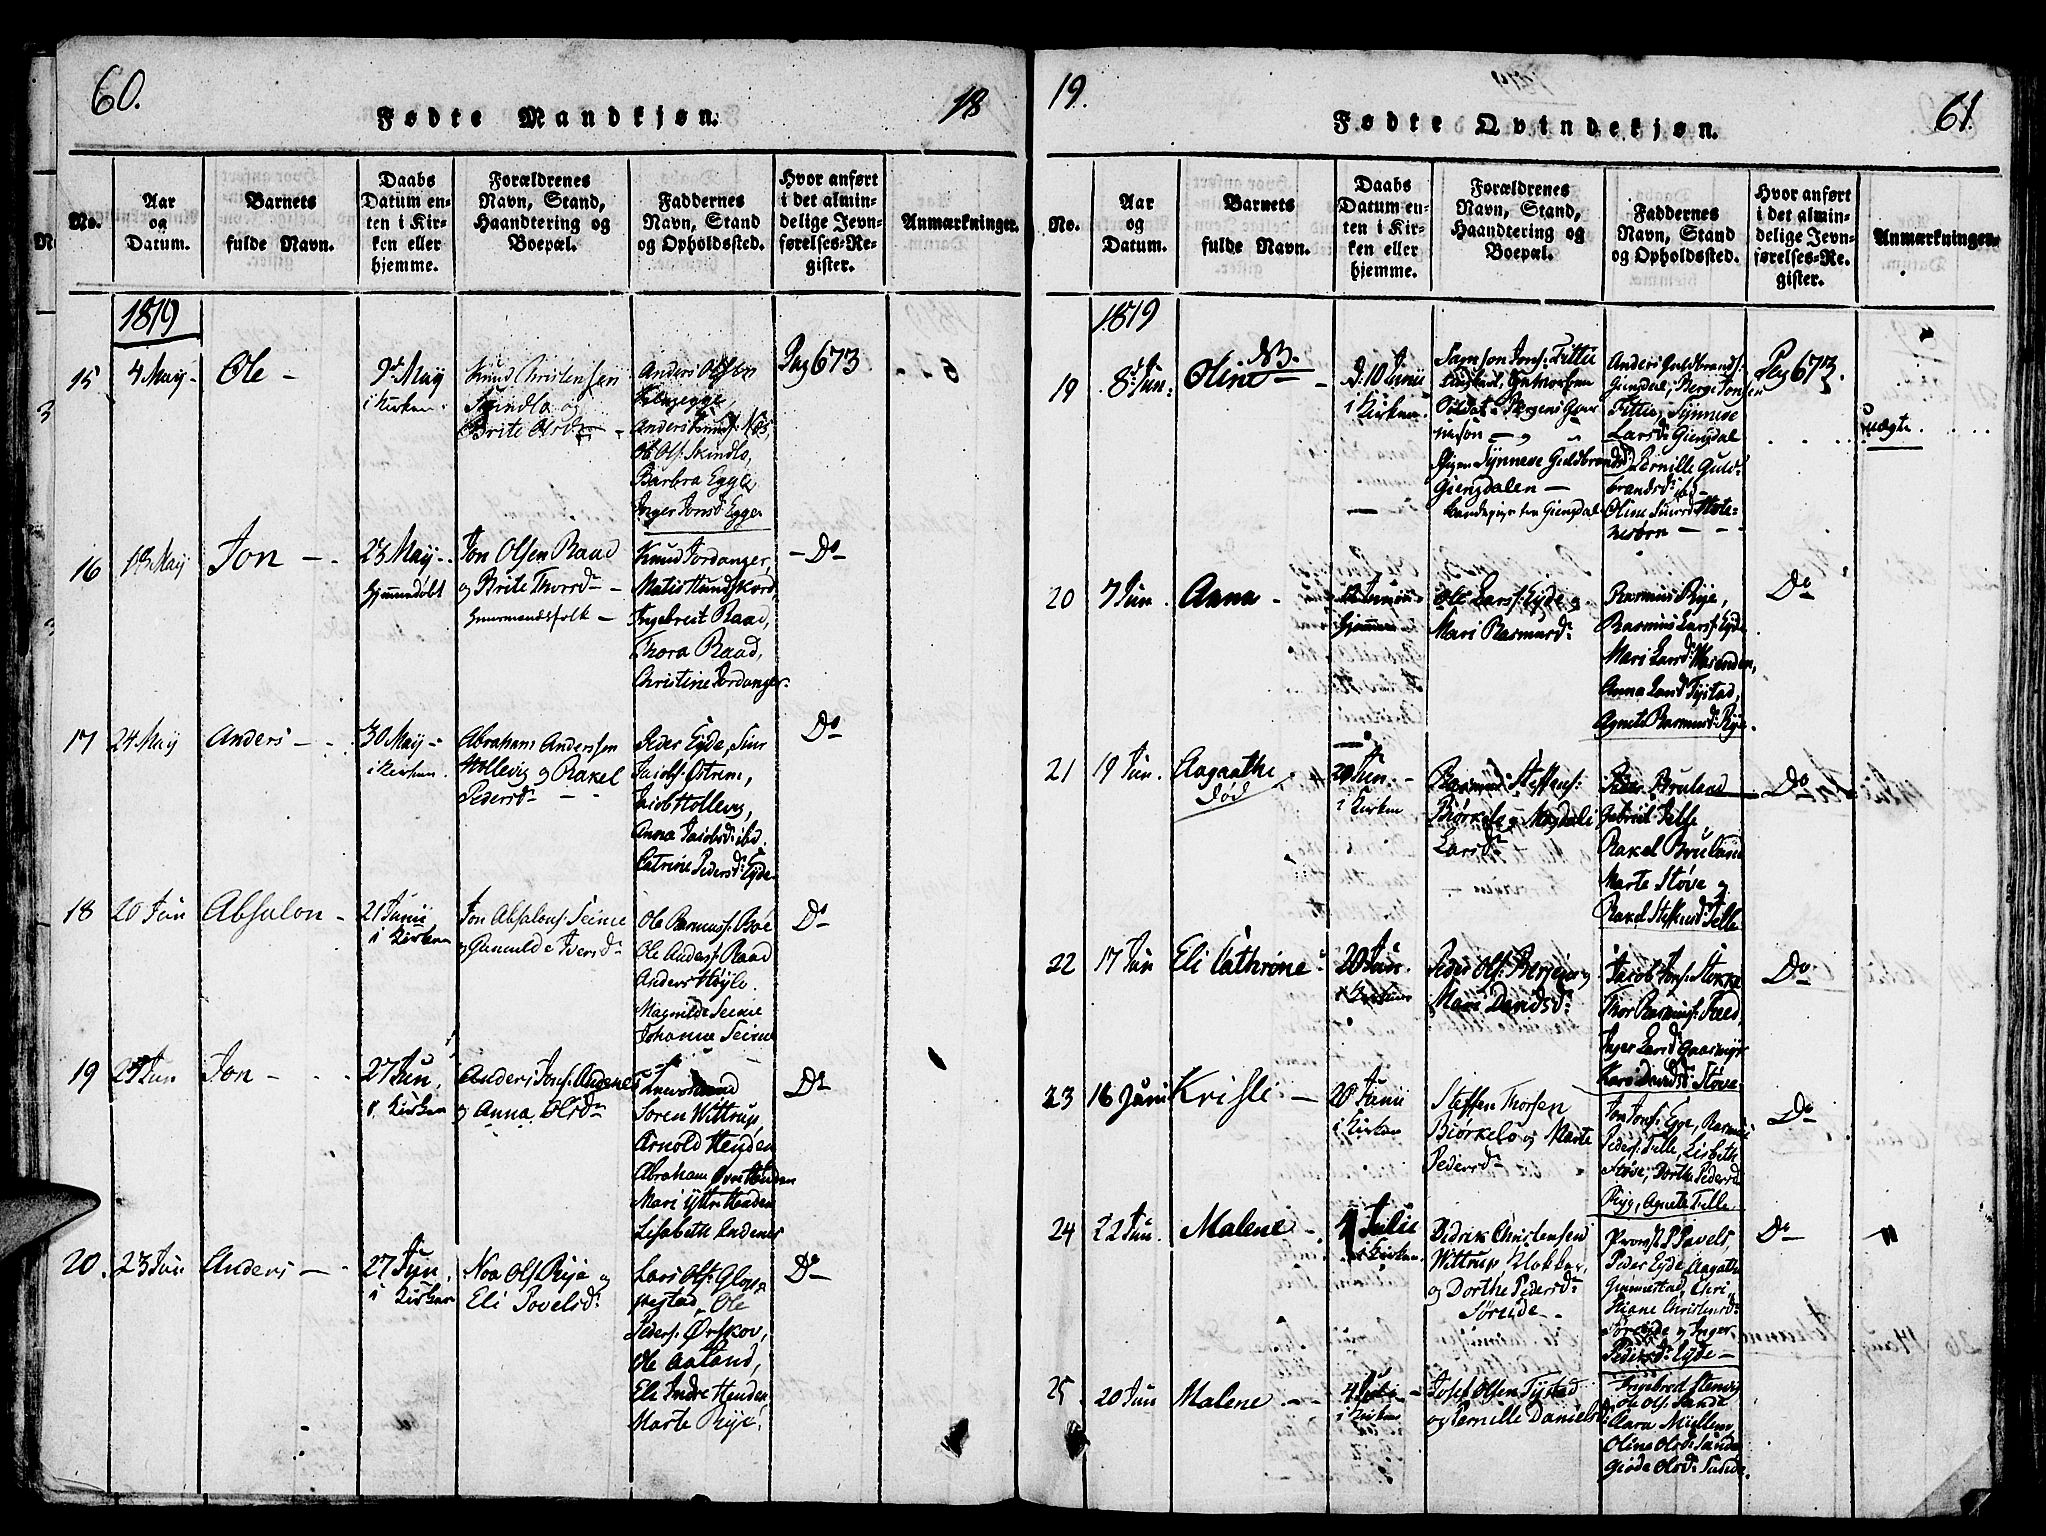 60.
18
Fødte Mandkjøn.
No.
Aar
og
Datum.
Barnets
fulde Navn.
Daabs
Datum en-
ten i Kir-
ken eller
hjemme.
Forældrenes
Navn, Stand,
Haandtering og
Boepæl.
Faddernes
Navn, Stand
og Opholdssted.
Hvor anført
i det almin-
delige Jevn-
førelses-Re-
gister.
Anmærkninger.
1819
15
4 May
Ole
9d May
i Kirken
Knud Christensen
Skindlo og
Brite Olsd.
Anders Olsen
Anders Knuds.
Ole Ols. Skindlo,
Barbra Egge,
Inger Jonsd. Egge
Pag 673
16
18 May
Jon
23 May
Hjemmedøbt
Jon Olsen Raad
og Brite Thorsd.
Knud Jordanger,
Matis Hundskord
Ingebreit Raad,
Thora Raad,
Christine Jordanger.
Do
17
24 May
Anders
30 May
i Kirken.
Abraham Anderssen
Hollevig og Rakel
Pedersd.
Peder Eyde, Siur
Jacobs. Østrem,
Jacob Hollevig,
Anna Jacobsd. ibd.
Catrine Pedersd. Eyde
Do
18
20 Jun
Absalon
21 Junii
i Kirken
Jon Absalons. Seime
og Gunnilde Iversd.
Ole Rasmuss. Boe
Ole Anders. Raad
Anders Høylo.
Magnilde Seime
Johanne Seime
Do
19
Jun
Jon
27 Jun,
i Kirken
Anders Jons. Andenes
og Anna Olsd.
Søren Wittrup
Arnold Henden
Abraham Øvre Henden
Mari Yttre Henden
Lisabeth Andenes
Do
20.
23 Jun
Anders
27 Jun,
i Kirken
Noa Ols. Rye og
Eli Povelsd.
Lars Ols. Glop-
pestad, Ole
Peders. Ørskov,
Ole Aaland,
Eli Indre Henden
Marte Rye.
Do
19.
61.
Fødte Qvindekjøn.
No.
Aar
og
Datum.
Barnets
fulde Navn.
Daabs
Datum en-
ten i Kir-
ken eller
hjemme.
Forældrenes
Navn, Stand,
Haandtering og
Boepæl.
Faddernes
Navn, Stand
og Opholdssted.
Hvor anført
i det almin-
delige Jevn-
førelses-Re-
gister.
Anmærkninger.
1819
19
8d Jun.
NB.
Oline
D. 10 Junii
i Kirken
Samson Jons. Fittie
Soldat Bergens Gar-
nison
Pigen Synneve Guldbrandsd.
Giengdalen
Anders Guldbrands.
Giengdal, Berge Jonsen
Fittie, Synneve
Larsd. Giengdal
Pernille Guld-
brandsd. ibd.
Oline Siursd. Hole-
nesørn
Pag 673.
uægte.
20
7 Jun.
Anna
Hjemme
Ole Larss. Eyde og
Mari Rasmusd.
Rasmus Rye,
Rasmus Larss. Eyde
Mari Larsd.
Anna Tystad,
Agnete Rasmusd. Rye.
Do
21
19 Jun.
Aagaathe
død
20 Jun.
i Kirken
Rasmus Steffens:
Biørkelo og Magdeli
Larsd.
Peder Bruland
Gabriel Felle
Rakel Bruland
Marte Støve og
Rakel Steffensd. Felle
Do
22
17 Jun
Eli Cathrine
20 Jun.
i Kirken
Peder Ols. Bergem og
Mari Davidsd.
Jacob Jons. Stokke
Thor Rasmuss. Fæd,
Inger Larsd. Gaasmyr
Kari Davidsd. Støve.
Do
23
16 Juni
Kristi
20 Junii
i Kirken
Steffen Thorsen
Biørkelo og Marte
Pedersd.
Jon Jons. Egge, Rasmus
Peders. Felle, Lisbeth
Støve, Dorthe Pedersd.
Ryg, Agnete Felle.
Do
24
22 Jun.
Malene
4 Julie
i Kirken.
Didrik Christensen
Wittrup Klokker,
og Dorthe Pedersd.
Søreide
Provst P. Pavels
Peder Eyde, Aagathe
Gimmestad, Chri-
stiane Christensd.
Søreide og Inger
Pedersd. Eyde
Do
25
20 Jun
Malene
4 Julie
i Kirken
Josef Olsen Tystad
og Pernille Danielsd.
Ole Ols. Sande
Clara Myklem
Oline Olsd. Sande
Giøde Olsd. Sande.